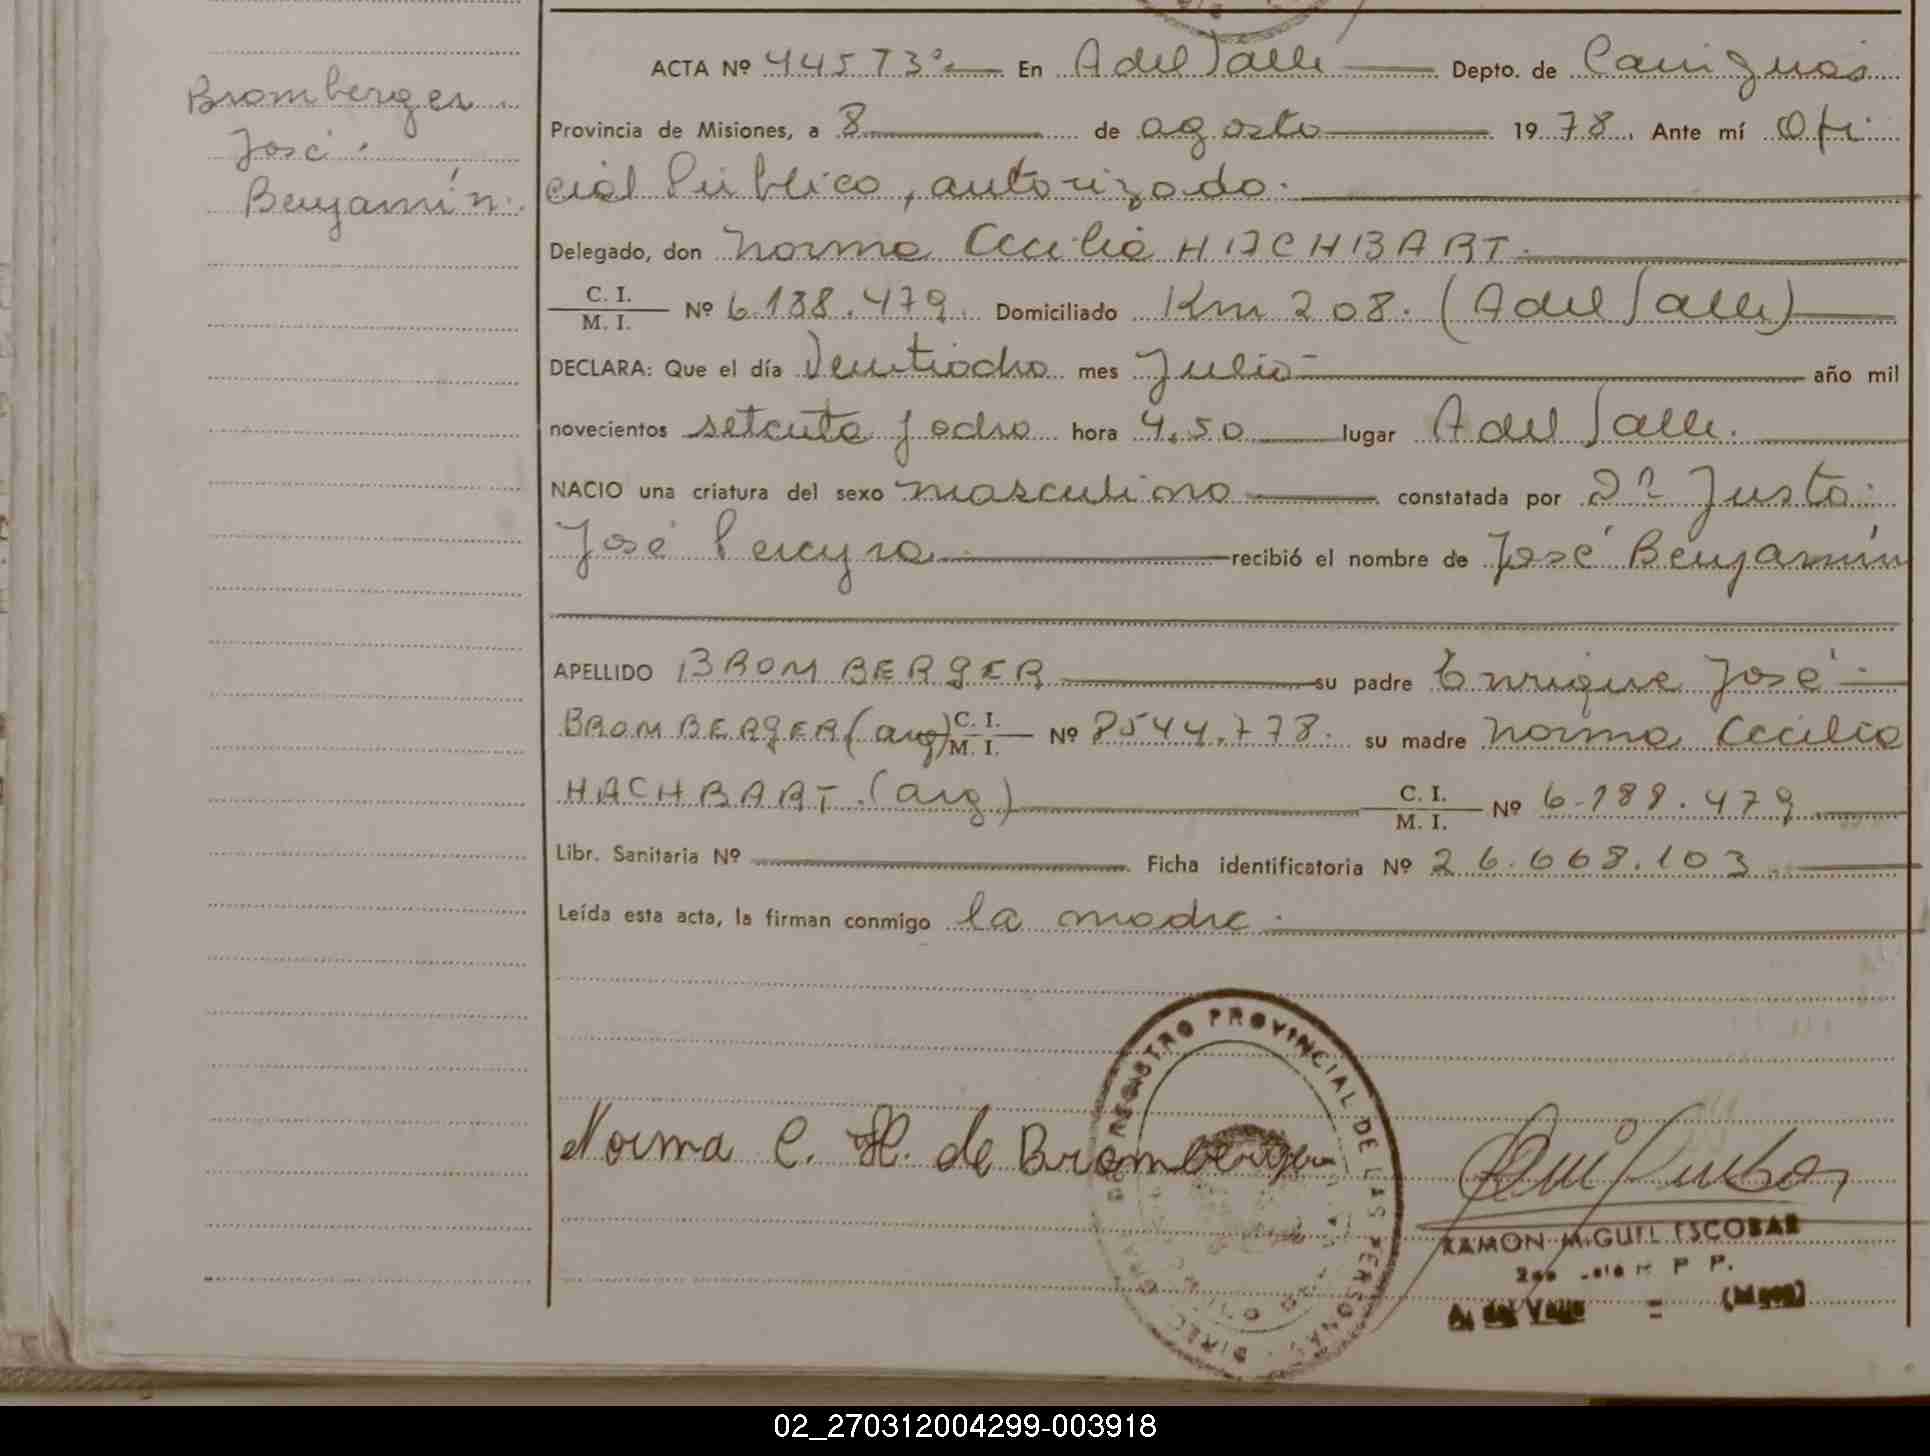 Bromberger
José
Benjamín.
ACTA Nº 445 T3º En A del Valle Depto. de Cainguás
Provincia de Misiones, a 8 de agosto 1978. Ante mí Ofi
cial Público, autorizado.
Delegado, don Norma Cecilia HACHBART.
C. I.
M. I. Nº 6.188.479. Domiciliado Km 208. (A del Valle)
DECLARA: Que el día Veintiocho mes Julio año mil
novecientos setenta y ocho hora 4.50 lugar A del Valle.
NACIO una criatura del sexo masculino constatada por Justo
José Pereyra recibió el nombre de José Benjamín
APELLIDO BROMBERGER su padre Enrique José
BROMBERGER (arg) C. I.
M. I. Nº 8544.778. su madre Norma Cecilia
HACHBART. (arg) C. I.
M. I. Nº 6.188.479
Libr. Sanitaria Nº Ficha identificatoria Nº 26.668.103
Leída esta acta, la firman conmigo la madre.
REGISTRO PROVINCIAL DE LAS PERSONAS
Norma C. H. de Bromberger
RAMON MIGUEL ESCOBAR
A. del Valle = (Mnes)
02_270312004299-003918